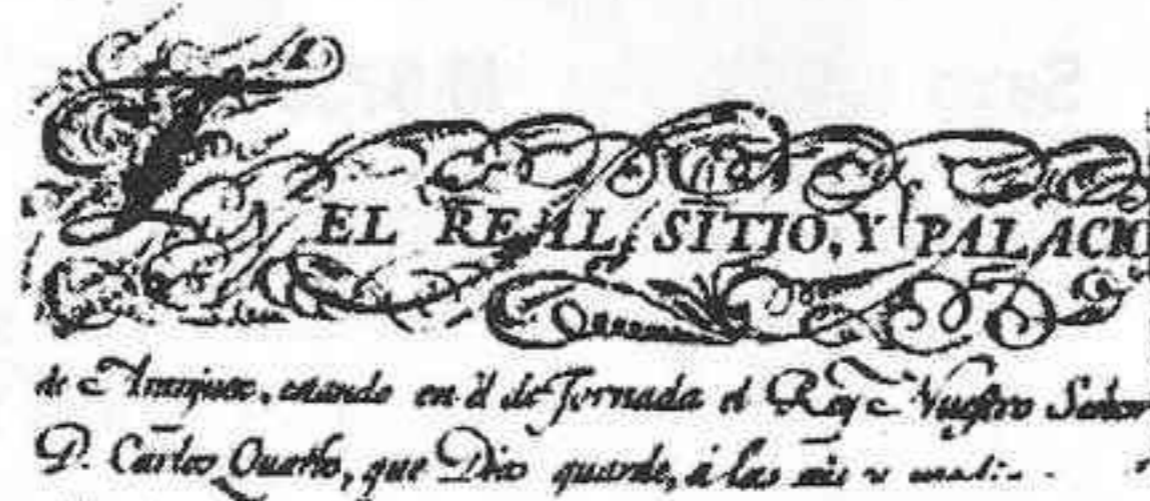 EL REAL SITIO, Y PALACIO
de Aranjuez, estando en él de Jornada el Rey Nuestro Señor
D. Carlos Quarto, que Dios guarde, á las seis y